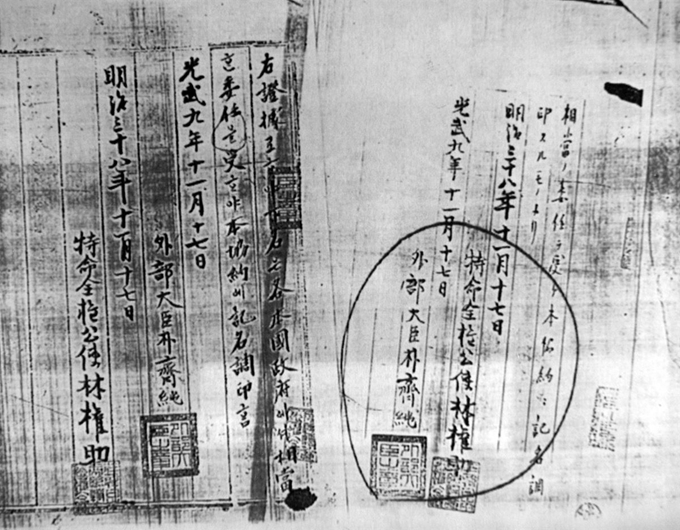 相當ノ委任ヲ受ケ本協約ニ記名調
印スルモノナリ
明治三十八年十一月十七日
特命全權公使林權助
光武九年十一月十七日
外部大臣朴齊純
右證據 名은各本國政府에셔相當
委任을受ᄒᆞ야本協約에記名調印
光武九年十一月十七日
外部大臣朴齊純
明治三十八年十一月十七日
特命全權公使林權助